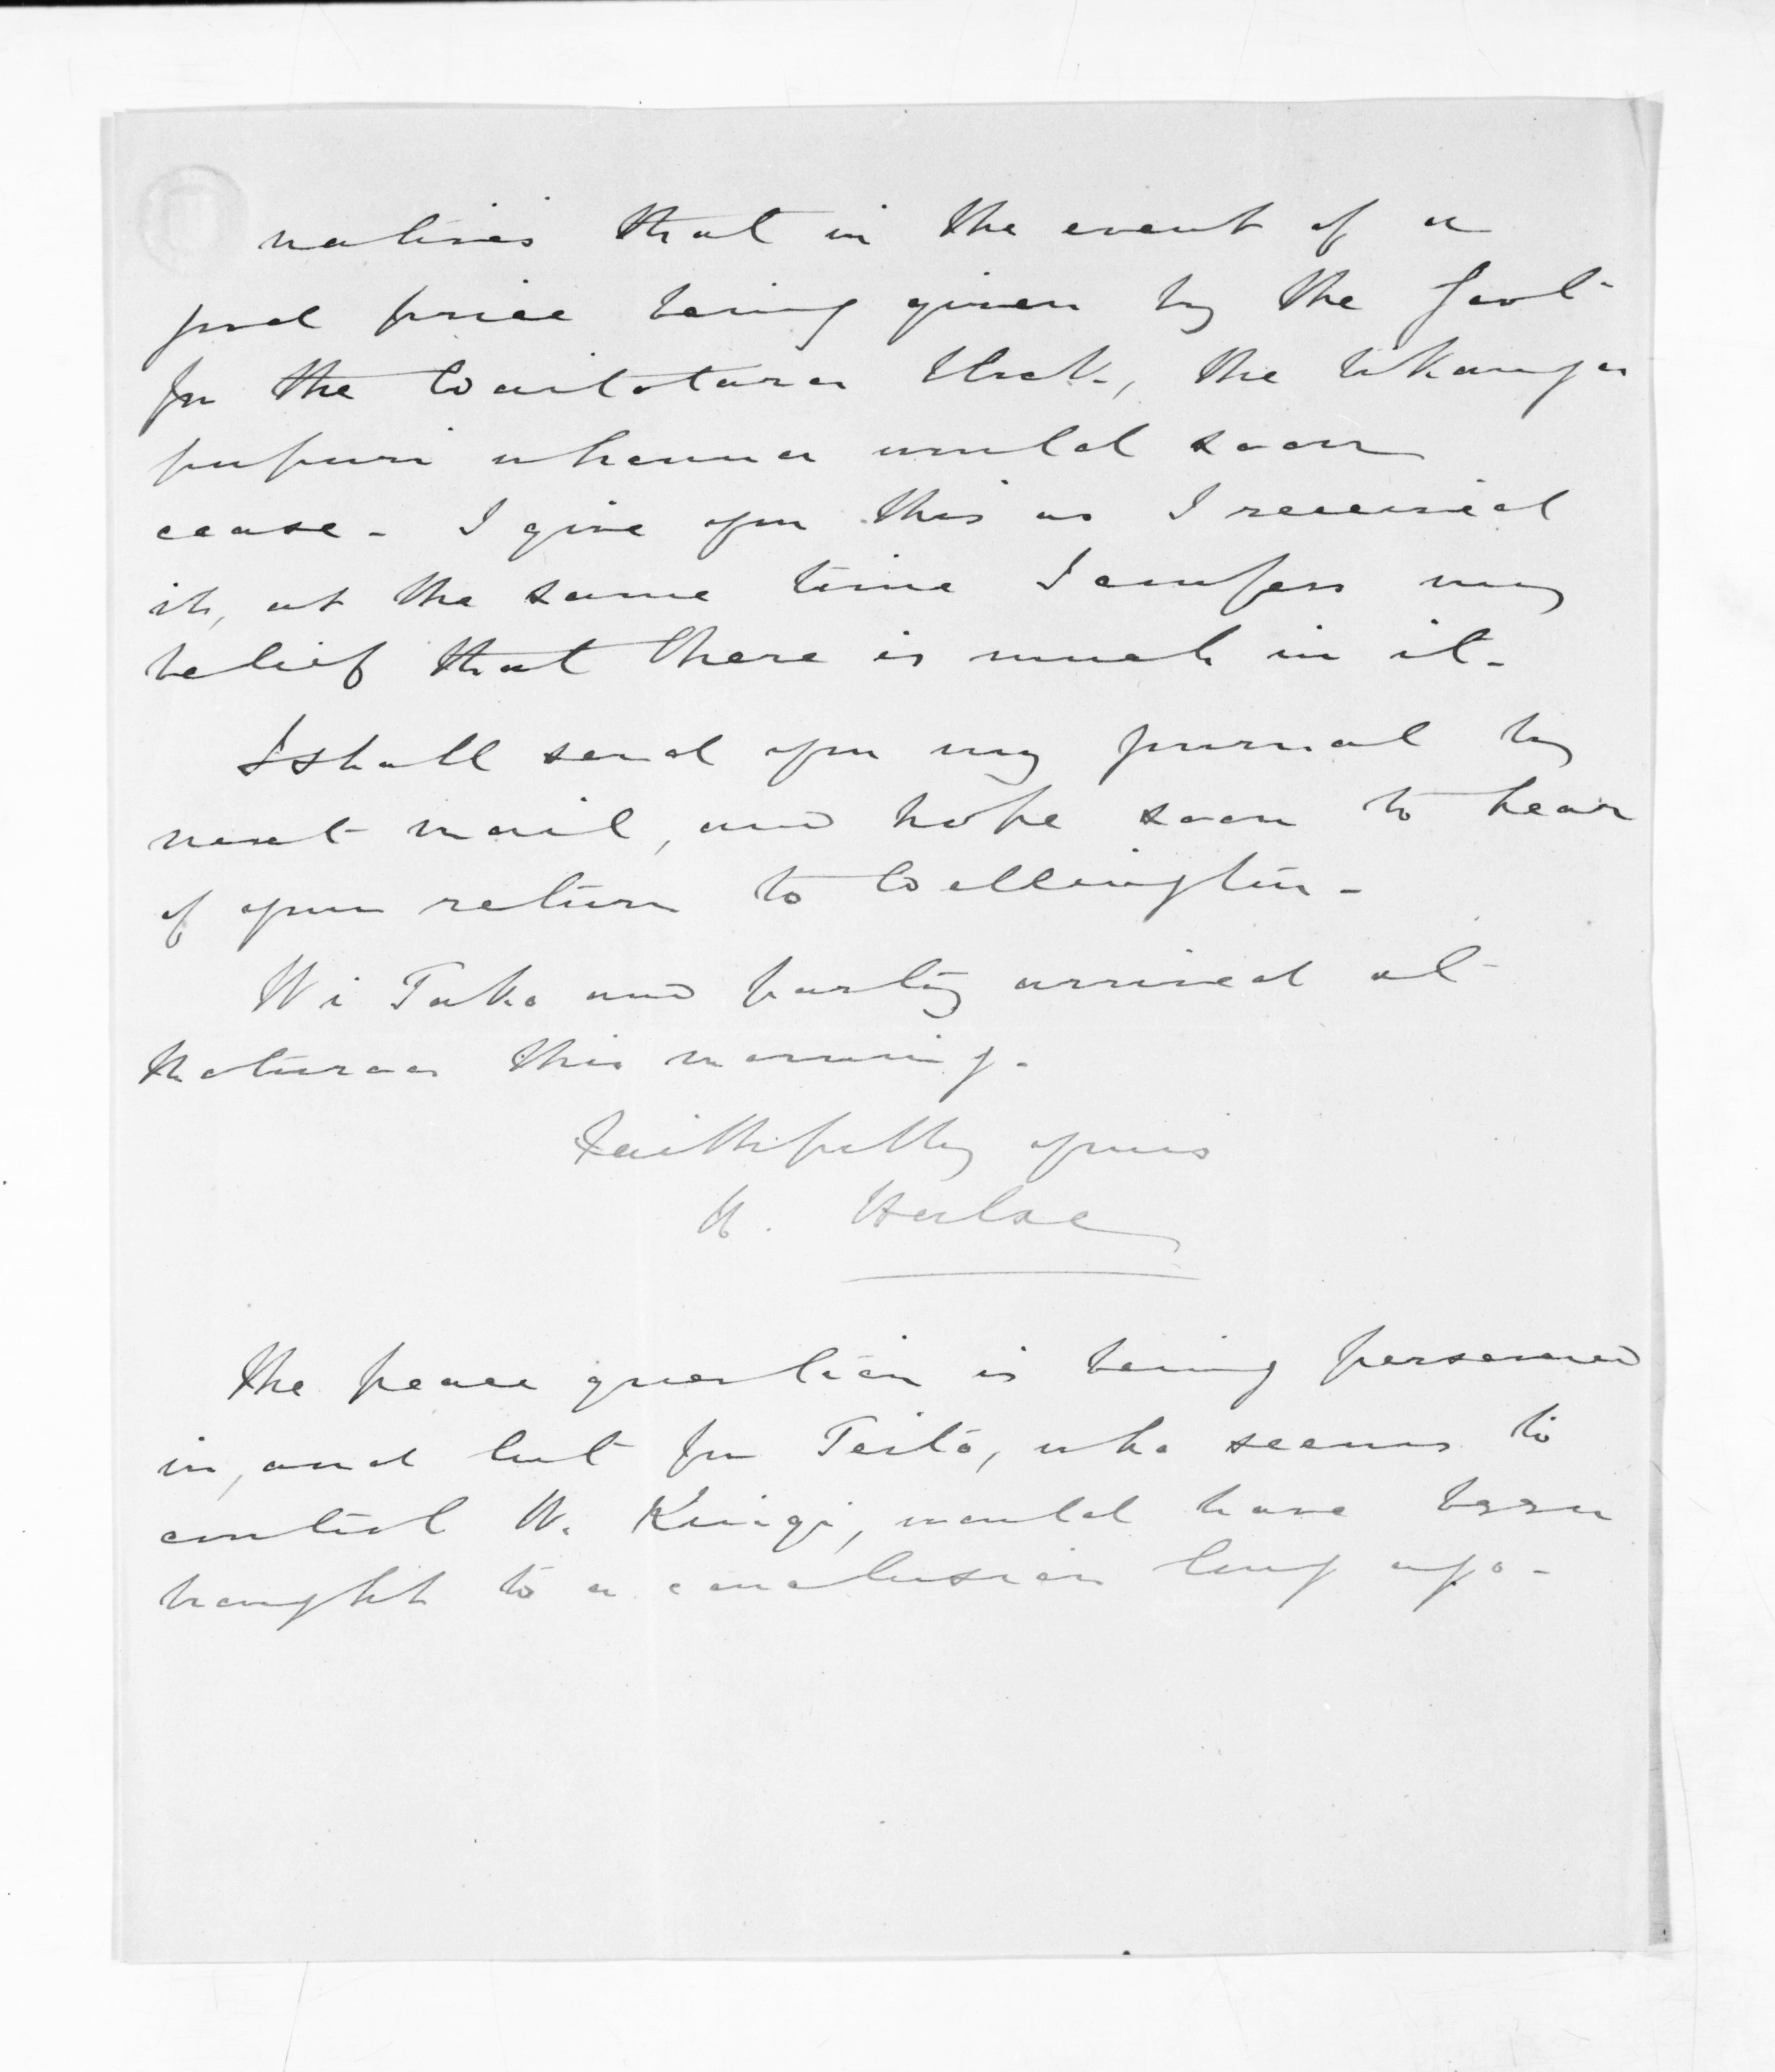 natives that in the event of a
good price being given by the Govt
for the Waitotara Block, the tikanga
pupuri whenua would soon
cease - I give you this as I received
it, at the same time I confess my
belief that there is much in it -
I shall send you my journal by
next mail, and hope soon to hear
of your return to Wellington -
Wi Tako and party arrived at
Maturoa this morning -
Faithfully yours
H. Halse
The peace question is being persevered
in, and but for Teito, who seems to
control W. Kingi, would have been
brought to a conclusion long ago -